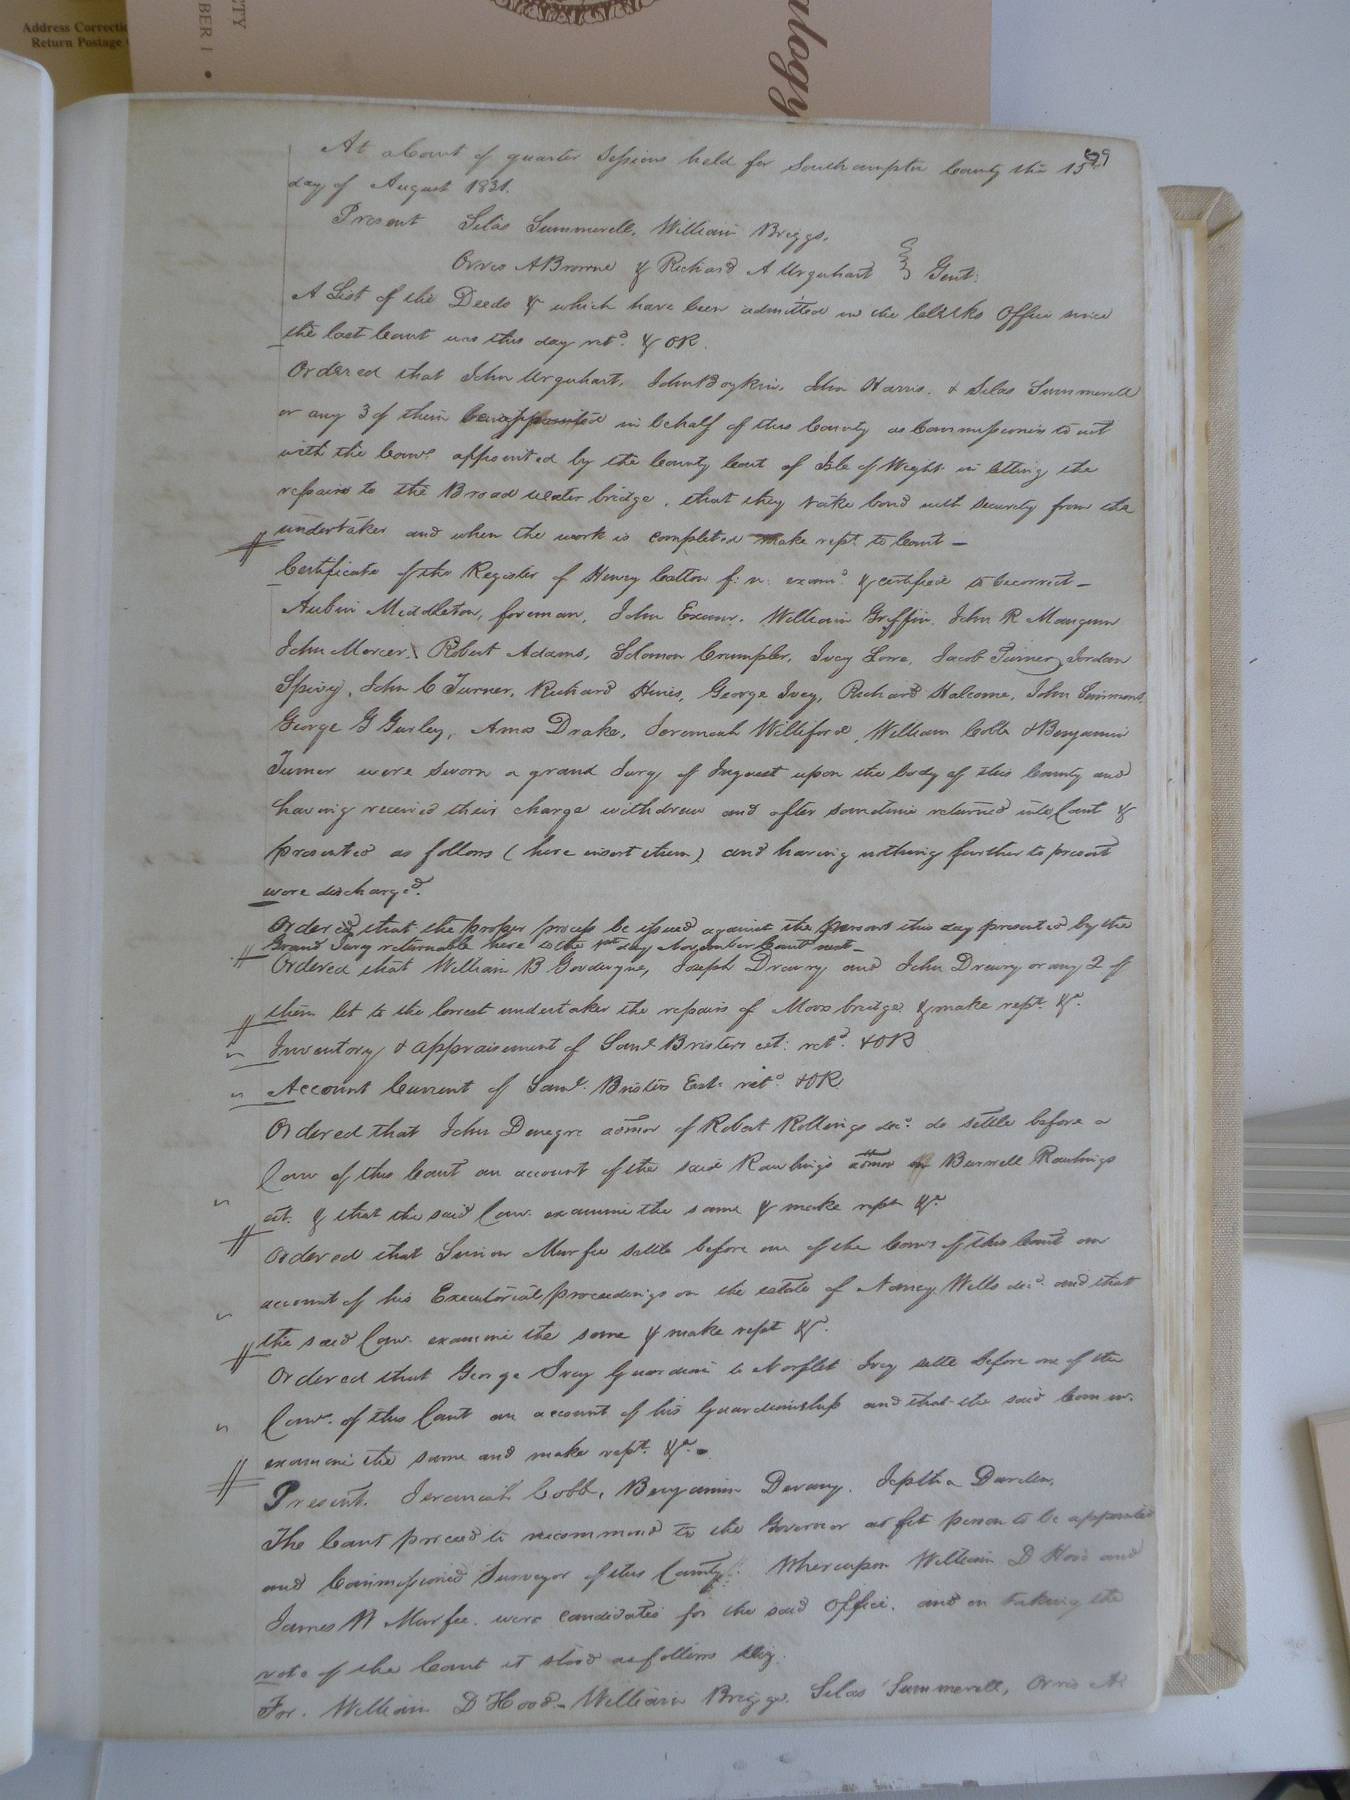 Address Correctio
Return Postage
CTY
BER 1 •
alogy
89
At a Court of quarter Sessions held for Southampton County the 15th
day of August 1831.
Present Silas Summerell, William Briggs,
Orris A Browne & Richard A Urquhart } Gent:
A List of the Deeds &c which have been admitted in the Clerks Office since
the last Court was this day retd. & OR.
Ordered that John Urquhart, John Boykin, John Harris, & Silas Summerell
or any 3 of them be appointed in behalf of this County as Commissioners to act
with the Comrs. appointed by the County Court of Isle of Wight in letting the
repairs to the Broad water bridge, that they take bond with security from the
undertaker and when the work is completed make rept. to Court —
Certificate of the Register of Henry Cotton f: n: examd. & certified to be correct —
Aubin Middleton, foreman, John Exum, William Griffin, John R Mangum
John Mercer, Robert Adams, Solomon Crumpler, Ivey Lowe, Jacob Turner, Jordan
Spivy, John C Turner, Richard Hines, George Ivey, Richard Halcome, John Simmons,
George G Gurley, Amos Drake, Jeremiah Williford, William Cobb & Benjamin
Turner were sworn a grand Jury of Inquest upon the body of this County and
having received their charge withdrew and after sometime returned into Court &
presented as follows (here insert them) and having nothing further to present
were discharged.
Ordered that the proper process be issued against the persons this day presented by the
Grand Jury returnable here to the 1st day November Court next —
Ordered that William B Goodwyne, Joseph Drewry and John Drewry or any 2 of
them let to the lowest undertaker the repairs of Moors bridge & make rept. &c.
Inventory & appraisement of Saml. Bristers est: retd. & OR
Account Current of Saml. Bristers Est: retd. & OR
Ordered that John Denegre admor of Robert Rollings decd. do settle before a
Comr of this Court an account of the said Rawlings admor of Burwell Rawlings
est. & that the said Comr. examine the same & make rept &c
Ordered that Simon Murfee settle before one of the Comrs of this Court an
account of his Executorial proceedings on the estate of Nancy Wells decd. and that
the said Comr. examine the same & make rept &c.
Ordered that George Ivey Guardian to Norflet Ivey settle before one of the
Comrs. of this Court an account of his Guardianship and that the said Commr.
examine the same and make rept. &c.
Present. Jeremiah Cobb, Benjamin Devany, Jeptha Darden,
The Court proceed to recommend to the Governor a fit person to be appointed
and Commissioned Surveyor of this County. Whereupon William D Hood and
James W Murfee were candidates for the said office, and on taking the
vote of the Court it stood as follows viz.
For. William D Hood — William Briggs, Silas Summerell, Orris A